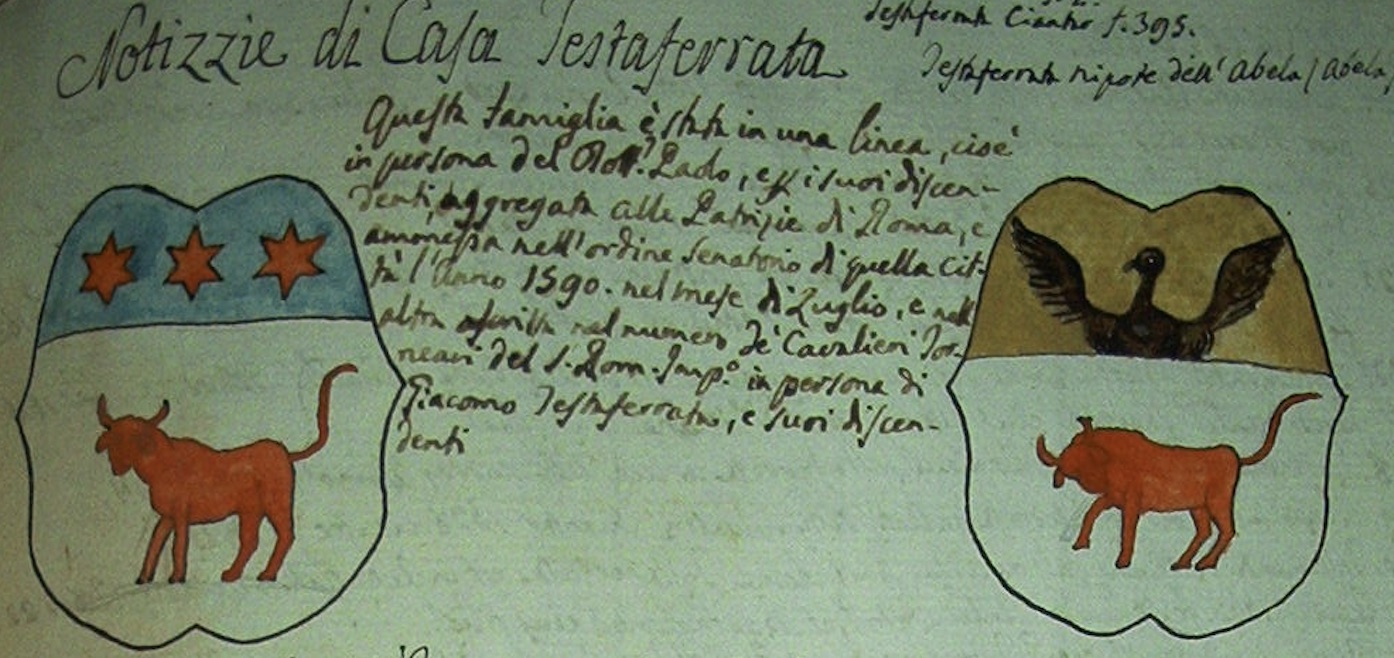 Notizzie di Casa Testaferrata
Testaferrata Ciantar f. 395.
Testaferrata nipote dell' Abela / Abela,
Questa famiglia è stata in una linea, cioè
in persona del Dott.r Paolo, e suoi discen-
denti, aggregata alle Patrizie di Roma, e
ammessa nell'ordine Senatorio di quella Cit-
tà l'Anno 1590. nel mese di Luglio, e nell
altra ascritta nel numero de' Cavalieri Tor-
neari del S. Rom. Imp.º in persona di
Giacomo Testaferrata, e suoi discen-
denti